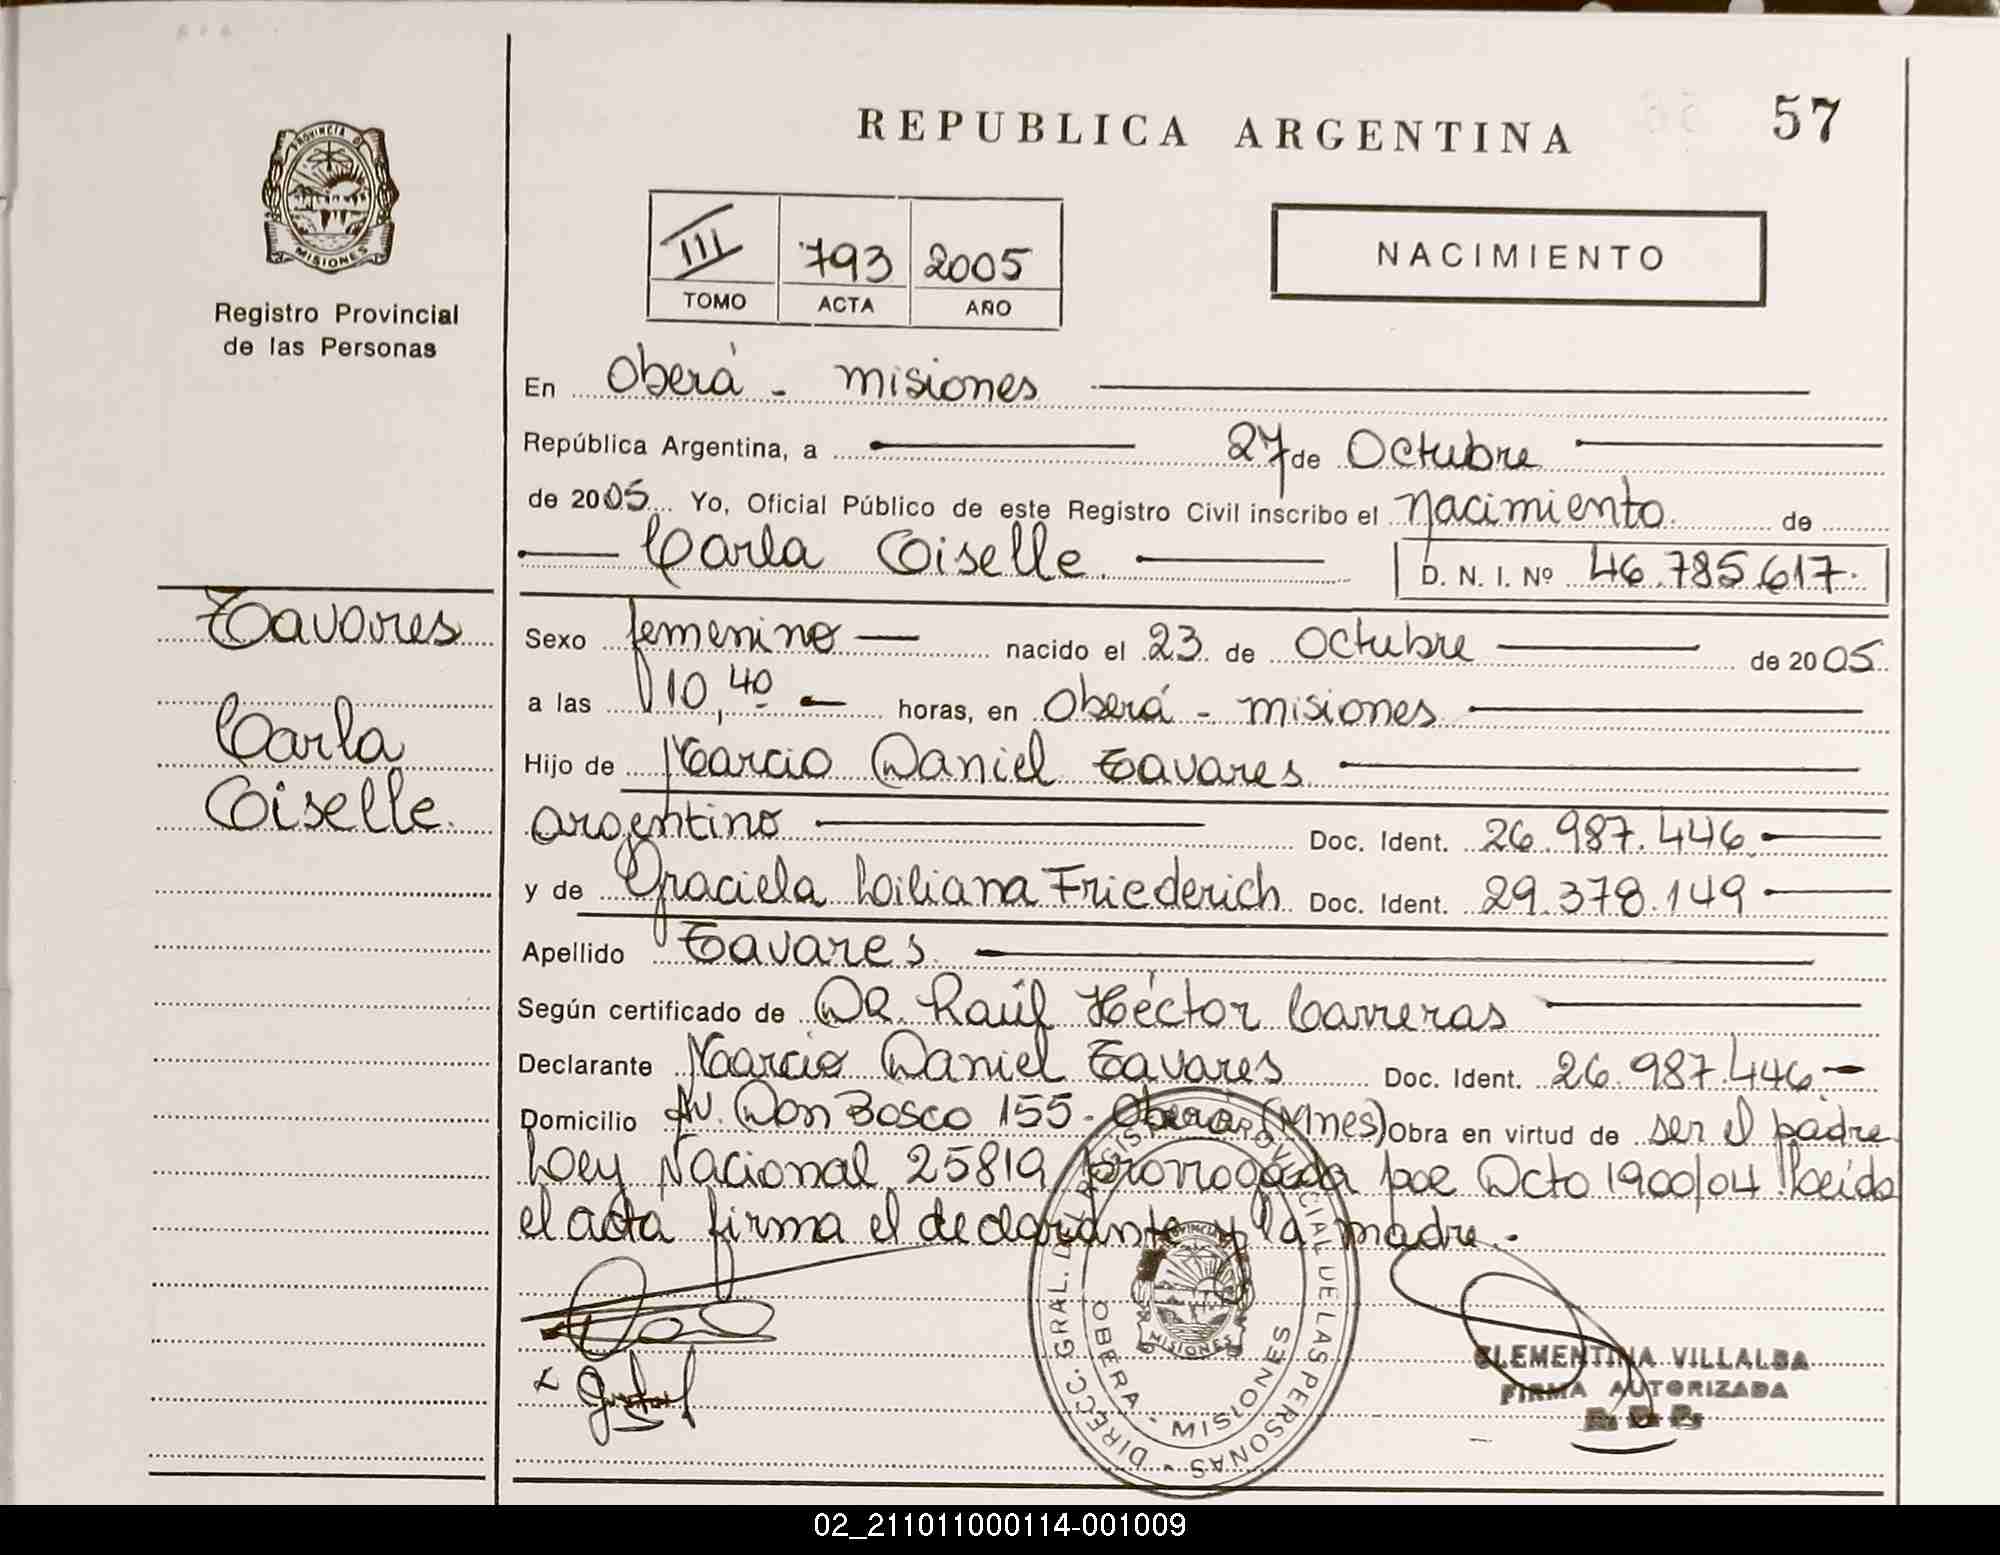 REPUBLICA ARGENTINA
57
PROVINCIA DE
MISIONES
Registro Provincial
de las Personas
III 793 2005
TOMO ACTA AÑO
NACIMIENTO
En Oberá - misiones
República Argentina, a 27 de Octubre
de 2005 Yo, Oficial Público de este Registro Civil inscribo el nacimiento de
Carla Giselle D. N. I. Nº 46.785.617.
Tavares
Carla
Giselle
Sexo femenino nacido el 23 de Octubre de 2005
a las 10,40 horas, en Oberá - misiones
Hijo de Marcio Daniel Tavares
argentino Doc. Ident. 26.987.446
y de Graciela Liliana Friederich Doc. Ident. 29.378.149
Apellido Tavares
Según certificado de DR. Raúl Héctor Carreras
Declarante Marcio Daniel Tavares Doc. Ident. 26.987.446
Domicilio Av. Don Bosco 155 - Oberá (Mnes) Obra en virtud de ser el padre
Ley Nacional 25819 prorrogada por Dcto 1900/04 Leída
el acta firma el declarante y la madre.-
DIRECC. GRAL. DEL REGISTRO PROVINCIAL DE LAS PERSONAS
OBERA - MISIONES
MISIONES
CLEMENTINA VILLALBA
FIRMA AUTORIZADA
R. P. P.
02_211011000114-001009